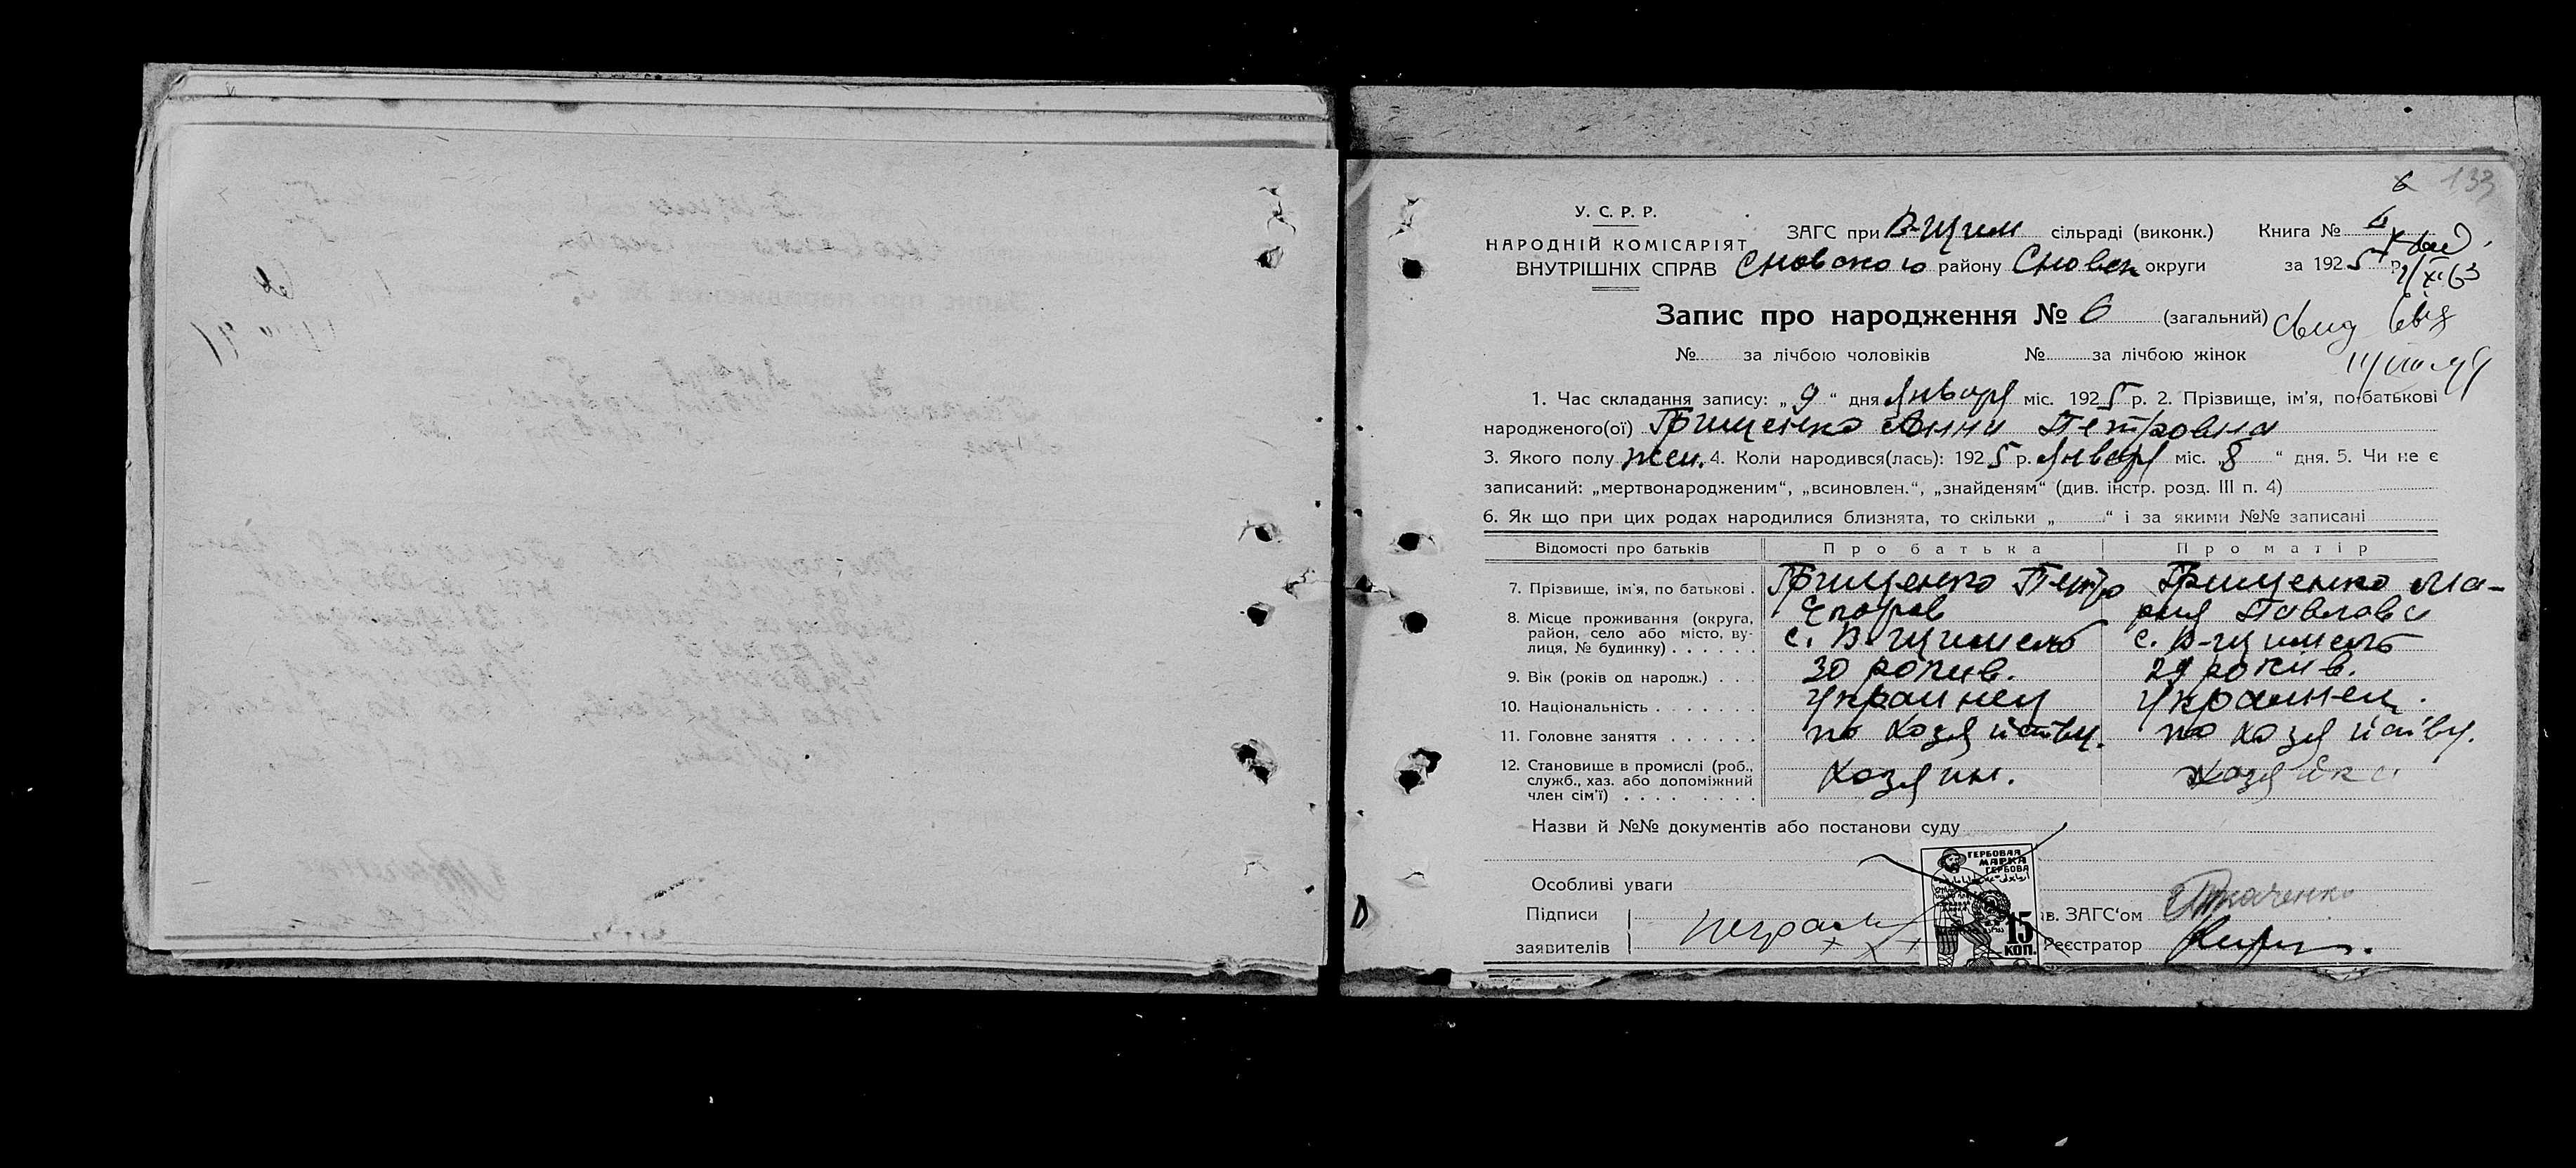 133
У. С. Р. Р.
НАРОДНІЙ КОМІСАРІЯТ
ВНУТРІШНІХ СПРАВ
ЗАГС при В-Щим сільраді (виконк.) Книга №
Сновского району Сновск округи за 1925 р.
Запис про народження № 6 (загальний)
№ за лічбою чоловіків № за лічбою жінок
1. Час складання запису: „ 9 “ дня Января міс. 1925 р. 2. Прізвище, ім'я, по-батькові
народженого(ої) Грищенко Анни Петровна
3. Якого полу жен. 4. Коли народився(лась): 1925 р. Января міс. „ 8 “ дня. 5. Чи не є
записаний: „мертвонародженим“, „всиновлен.“, „знайденям“ (див. інстр. розд. III п. 4)
6. Як що при цих родах народилися близнята, то скільки „ “ і за якими №№ записані
Відомості про батьків Про батька Про матір
7. Прізвище, ім'я, по батькові . Грищенко Петро Грищенко Ма-
рия Павлова
8. Місце проживання (округа,
район, село або місто, ву-
лиця, № будинку) . . . . . . с. В-Щимель с. В-Щимель
9. Вік (років од народж.) . . . 30 рокив. 29 рокив.
10. Національність . . . . . . . Украинец Украинец.
11. Головне заняття . . . . . . по хозяйству. по хозяйству.
12. Становище в промислі (роб.,
служб., хаз. або допоміжний
член сім'ї) . . . . . . . . Хозяин. Хозяйка
Назви й №№ документів або постанови суду
Особливі уваги
Підписи
заявителів
ГЕРБОВАЯ
МАРКА
ГЕРБОВА
15
КОП.
в. ЗАГС'ом Ткаченко
Реєстратор